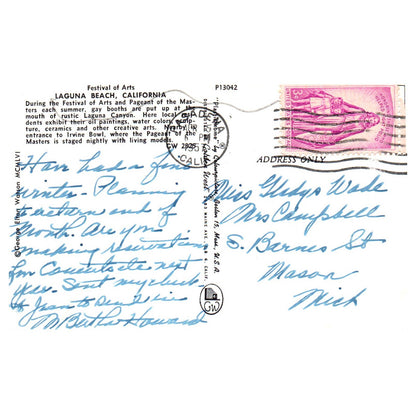 Festival of Arts
LAGUNA BEACH, CALIFORNIA
During the Festival of Arts and Pageant of the Mas-
ters each summer, gay booths are put up at the
mouth of rustic Laguna Canyon. Here local
dents exhibit their oil paintings, water colors,
ture, ceramics and other creative arts. Nearby is
entrance to Irvine Bowl, where the Pageant of the
Masters is staged nightly with living models.
GW 2925
P13042
CALIF
ADDRESS ONLY
© George Watson MCMLVI
GW
Have had a fine
winter. Planning
return end of
Month. Are you
making reservations
for next
year. Sent my check
of Jean to
Bertha Howard
Miss Gladys Wade
Mrs Campbell
S. Barnes St
Mason
Mich